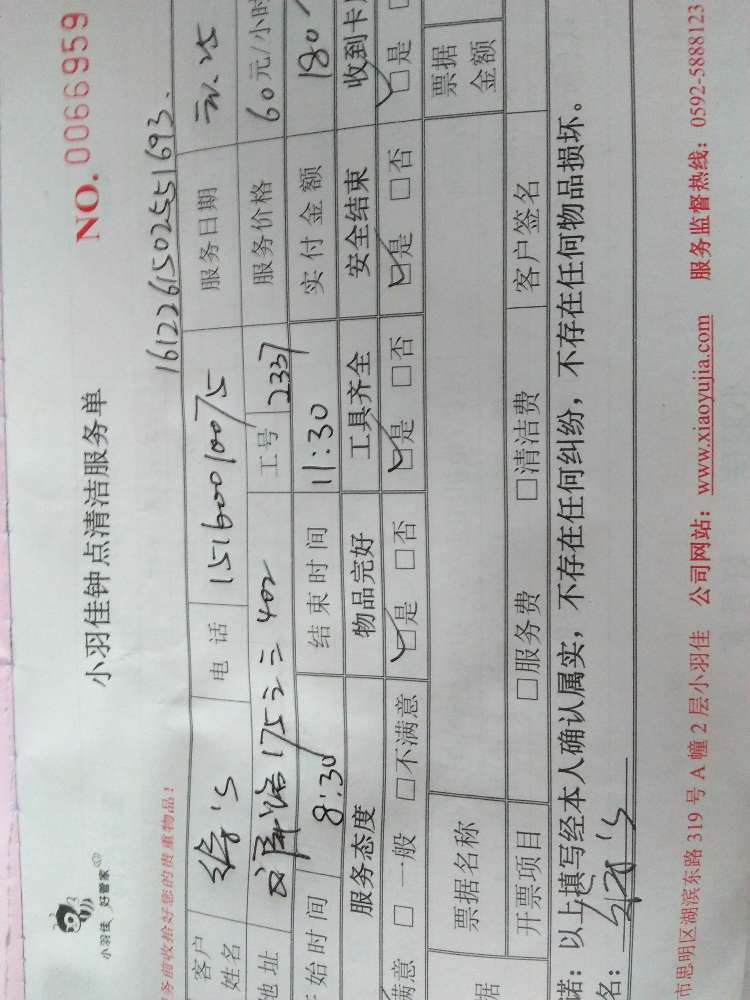 小羽佳 好管家
小羽佳钟点清洁服务单
NO. 0066959
务前收拾好您的贵重物品!
1612261502551693.
客户姓名 徐's 电话 15160010075 服务日期
地址 175之三 402 工号 2337 服务价格 60元/小时
开始时间 8:30 结束时间 11:30 实付金额 180
服务态度 物品完好 工具齐全 安全结束 收到卡
满意 □ 一般 □ 不满意 ☑是 □否 ☑是 □否 ☑是 □否 ☑是 □
据 票据名称 票据金额
开票项目 □服务费 □清洁费 客户签名
诺:以上填写经本人确认属实,不存在任何纠纷,不存在任何物品损坏。
名:
市思明区湖滨东路 319 号 A 幢 2 层小羽佳 公司网站:www.xiaoyujia.com 服务监督热线:0592-5888123